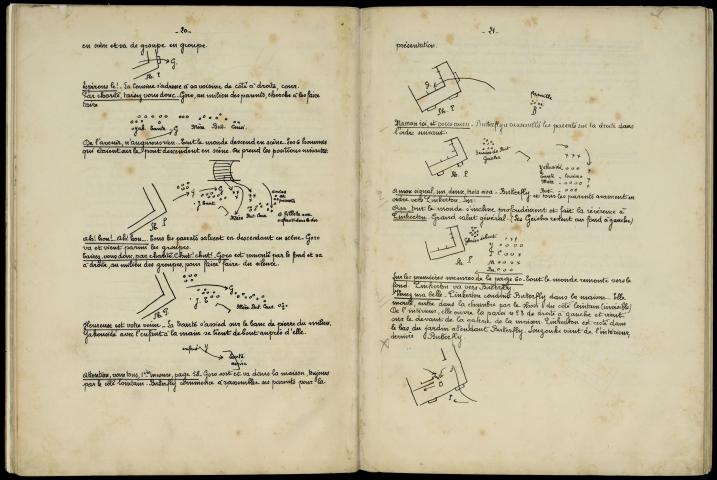 _20_
en scène et va de groupe en groupe.
G.
Sh. P.
Expirons le! _ La Cousine s'adresse à sa voisine de côté à droite, cour.
Par charité, taisez vous donc. Goro, au milieu des parents, cherche à les faire
taire
G
Mère But. Cous.
De l'avenir, n'augurons rien. Tout le monde descend en scène. Les 6 hommes
qui étaient sur le pont descendent en scène. On prend les positions suivantes:
Sh. P
Mère But. Cous.
Ah! bon! Ah! bon... Tous les parents saluent en descendant en scène. Goro
va et vient parmi les groupes.
Taisez vous donc, par charité. Chut! chut! Goro est remonté par le fond et va
à droite, au milieu des groupes, pour faire faire du silence.
Mère But. Cous.
Sh. G.
Heureuse est votre veine. La Tante s'assied sur le banc de pierre du milieu,
Yakouside avec l'enfant à la main se tient debout auprès d'elle.
enfant Y
Tante
assise
Attention, vous tous, 1ère mesure, page 58. Goro sort et va dans la maison, toujours
par le côté lointain. Butterfly commence à rassembler ses parents pour la
_21_
présentation.
G.
Sh. P
famille
B
Maman ici, et vous aussi. Butterfly a rassemblé les parents sur la droite dans
l'ordre suivant:
Sh. P.
Geisha
Yakouside
Tante
Cousine
Mère
But.
A mon signal, un, deux, trois aïva. Butterfly et tous les parents avancent en
ordre vers Pinkerton. Sur
Aïva, tout le monde s'incline profondément et fait la révérence à
Pinkerton. Grand salut général. (Les Geisha restent au fond à gauche)
Sh. P
Y
C
M
Bu
Sur les premières mesures de la page 60. Tout le monde remonte vers le
fond. Pinkerton va vers Butterfly.
Venez ma belle. Pinkerton conduit Butterfly dans la maison. Elle
monte, entre dans la chambre par le shosi 1 du côté lointain (invisible)
De l'intérieur, elle ouvre la paroi n° 3 de droite à gauche et vient
sur le devant de la galerie de la maison. Pinkerton est resté dans
le bas du jardin attendant Butterfly. Souzouki vient de l'intérieur,
derrière Butterfly